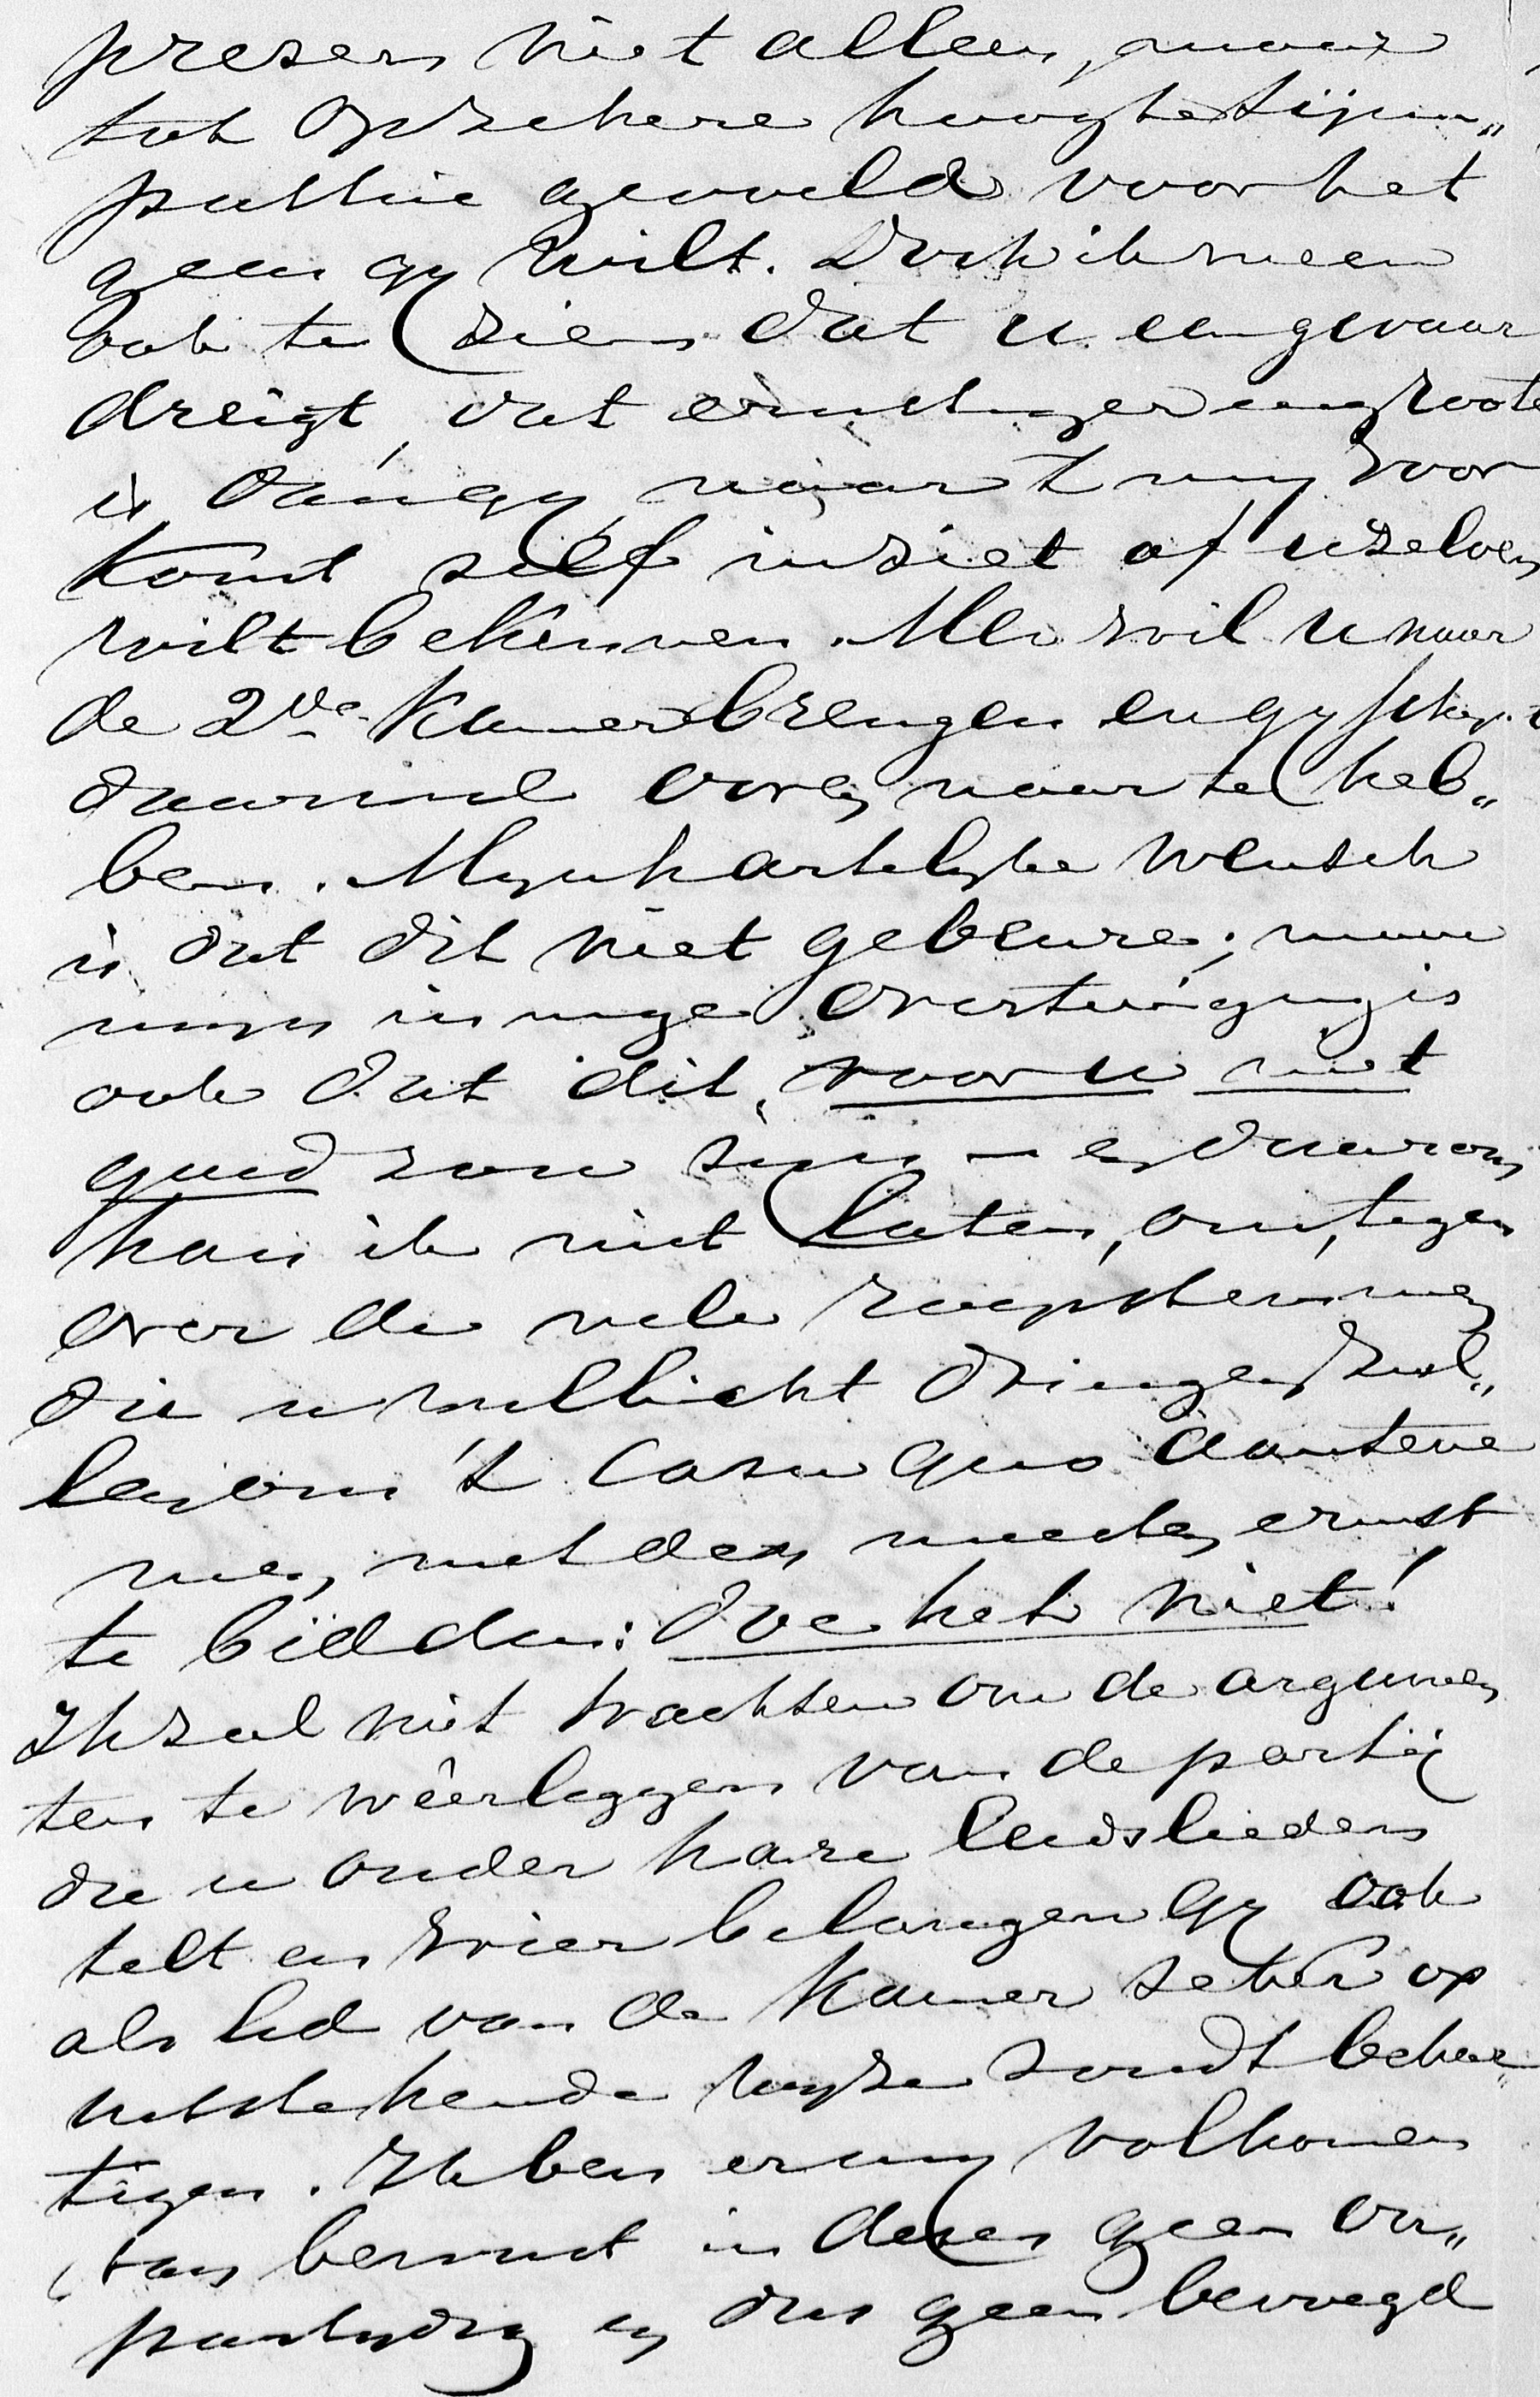 prezen niet alleen, maar
tot op zekere hoogte sijm„
pathie gevoeld voor het
geen gy wilt. Doch ik meen
ook te zien dat u een gevaar
dreigt, dat ernstiger en grooter
is dan gy, naar 't my voor
komt zelf inziet of uzelven
wilt bekennen. Men wil u naar
de 2de Kamer brengen en gy schijnt
daarnaar ooren naar te heb„
ben. Myn hartelyke wensch
is dat dit niet gebeure; maar
myn innige overtuiging is
ook dat dit, voor u niet
goed zou zijn – en daarom
kan ik niet laten, om, tegen
over de vele roepstemmen
die u wellicht dringen zul„
len om 't casu quo aantene
men, met den meesten ernst
te bidden: doe het niet!
Ik zal niet trachten om de argumen
ten te wêerleggen van de partij
die u onder hare leidslieden
telt en wier belangen gy ook
als lid van de Kamer zeker op
uitstekende wyze zoudt behar„
tigen. Ik ben er my volkomen
van bewust in dezen geen on„
partydig en dus geen bevoegd